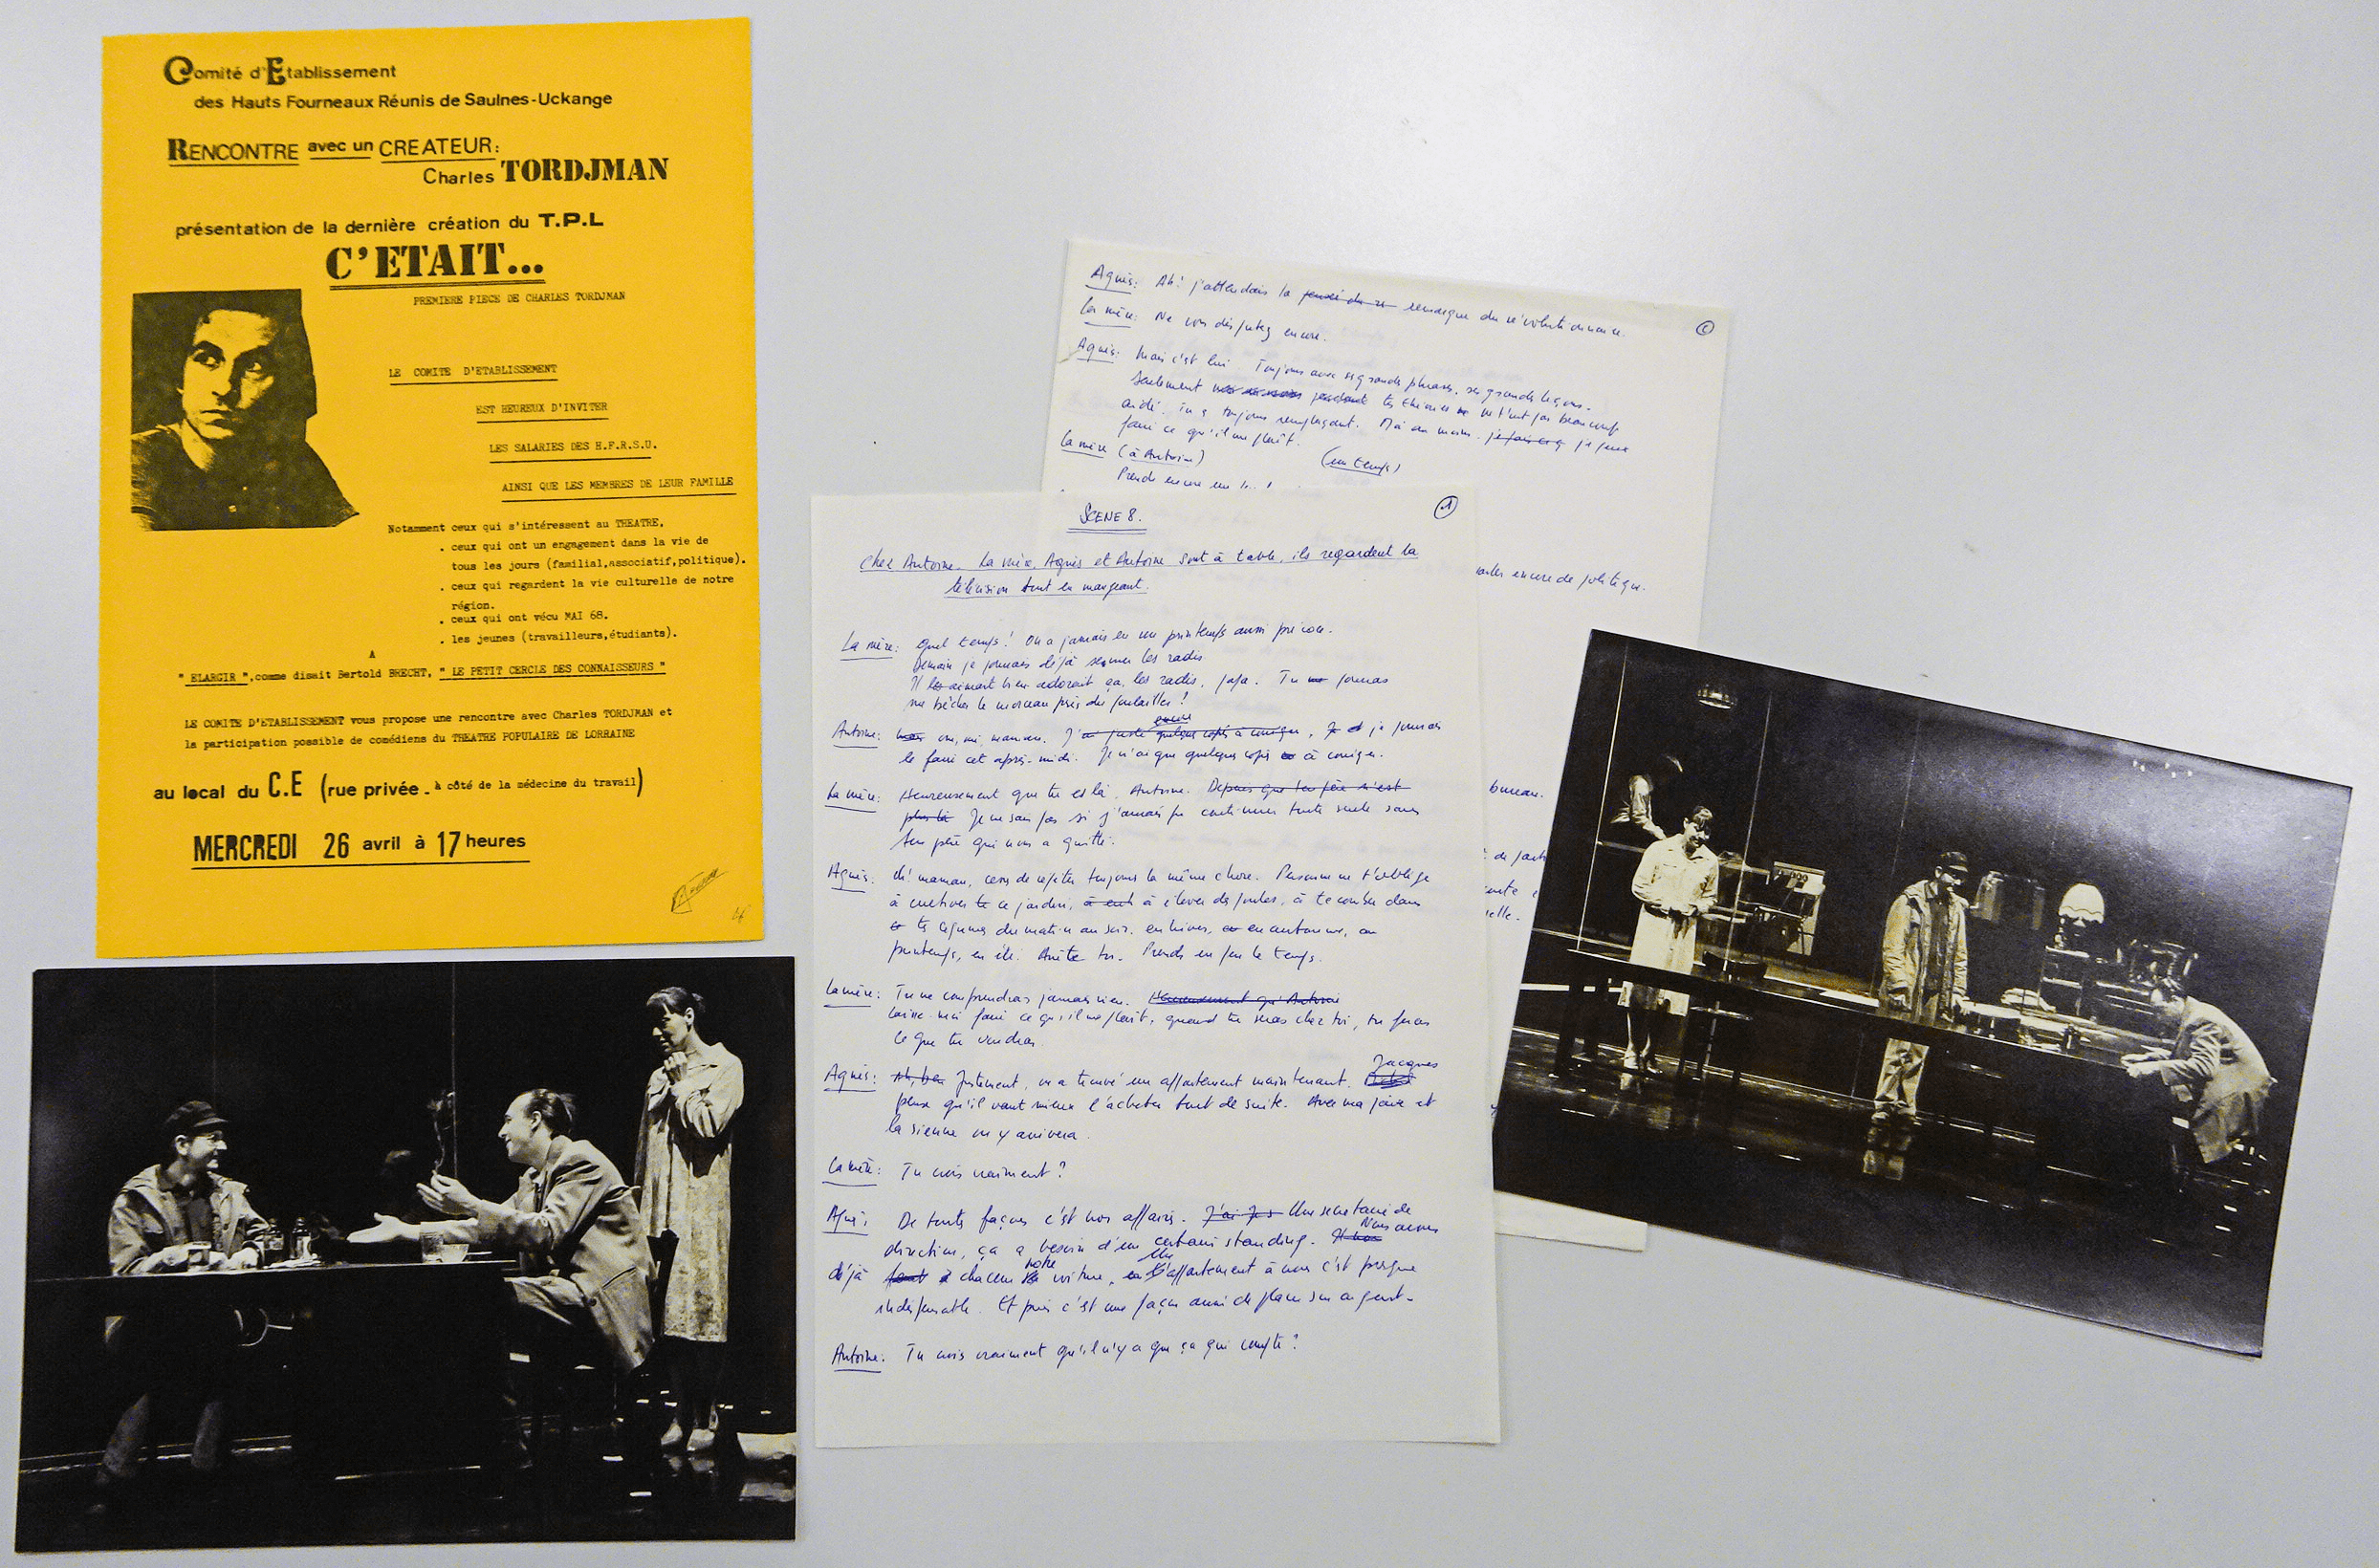 Comité d'Etablissement
des Hauts Fourneaux Réunis de Saulnes-Uckange
RENCONTRE avec un CREATEUR:
Charles TORDJMAN
présentation de la dernière création du T.P.L
C'ETAIT...
PREMIERE PIECE DE CHARLES TORDJMAN
LE COMITE D'ETABLISSEMENT
EST HEUREUX D'INVITER
LES SALARIES DES H.F.R.S.U.
AINSI QUE LES MEMBRES DE LEUR FAMILLE
Notamment ceux qui s'intéressent au THEATRE,
. ceux qui ont un engagement dans la vie de
tous les jours (familial,associatif,politique).
. ceux qui regardent la vie culturelle de notre
région.
. ceux qui ont vécu MAI 68.
. les jeunes (travailleurs,étudiants).
A
" ELARGIR ",comme disait Bertold BRECHT, " LE PETIT CERCLE DES CONNAISSEURS "
LE COMITE D'ETABLISSEMENT vous propose une rencontre avec Charles TORDJMAN et
la participation possible de comédiens du THEATRE POPULAIRE DE LORRAINE
au local du C.E (rue privée - à côté de la médecine du travail)
MERCREDI 26 avril à 17 heures
Agnès: Ah! j'attendais la remarque du révolutionnaire.
La mère: Ne vous disputez encore.
Agnès: Mais c'est lui Toujours avec ses grands phrases, ses grands leçons.
Seulement tes théories ne t'ont pas beaucoup
aidé. Tu es toujours remplaçant. Moi au moins je peux
faire ce qu'il me plaît.
La mère (à Antoine) (un temps)
Prends encore un
encore de politique.
bureau.
SCENE 8.
1
Chez Antoine. La mère, Agnès et Antoine sont à table, ils regardent la
télévision tout en mangeant.
La mère: Quel temps! On a jamais eu un printemps aussi précoce.
Demain je pourrais déjà semer les radis
Il adorait ça, les radis, papa. Tu pourras
me bêcher le morceau près du poulailler!
Antoine: oui, oui, maman. je pourrais
le faire cet après-midi. Je n'ai que quelques copies à corriger.
La mère: Heureusement que tu es là, Antoine. Depuis que ton père n'est
plus là Je ne sais pas si j'aurais pu continuer toute seule sans
ton père qui nous a quitté.
Agnès: Oh! maman, cesse de répéter toujours la même chose. Personne ne t'oblige
à cultiver ce jardin, à élever des poules, à te courber dans
tes légumes du matin au soir, en hiver, en automne, au
printemps, en été. Arrête toi. Prends un peu le temps.
La mère: Tu ne comprendras jamais rien. Heureusement qu'Antoine
Laisse-moi faire ce qu'il me plaît, quand tu seras chez toi, tu feras
ce que tu voudras.
Agnès: Ah, ben Justement, on a trouvé un appartement maintenant. Jacques
pense qu'il vaut mieux l'acheter tout de suite. Avec ma paie et
la sienne on y arrivera.
La mère: Tu crois vraiment?
Agnès: De toutes façons c'est nos affaires. Une secrétaire de
direction, ça a besoin d'un certain standing. Nous avons
déjà chacun notre voiture, un appartement à nous c'est presque
indispensable. Et puis c'est une façon aussi de placer son argent.
Antoine: Tu crois vraiment qu'il n'y a que ça qui compte?